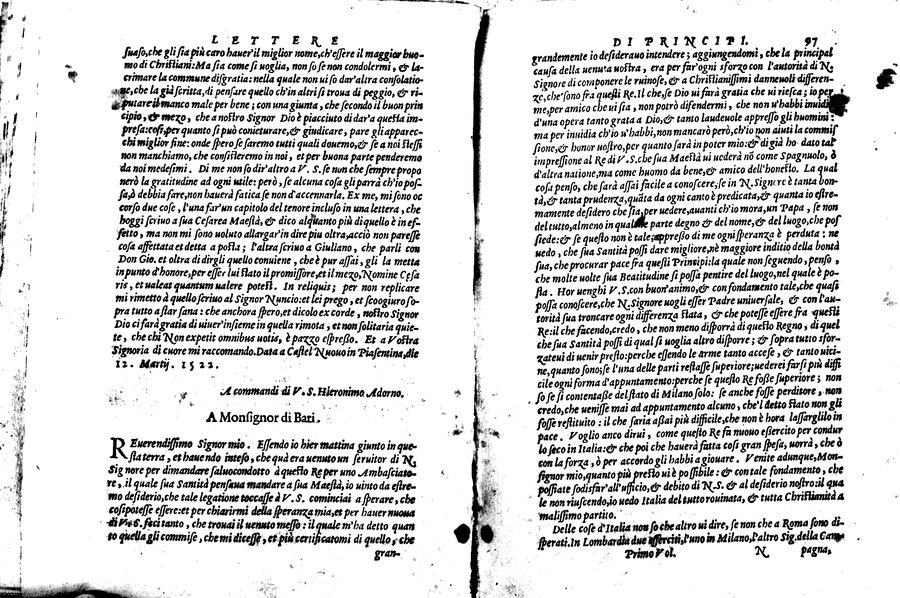 LETTERE
suaso, che gli sia più caro hauer'il miglior nome, ch'essere il maggior huo-
mo di Christiani: Ma sia come si uoglia, non so se non condolermi, & la-
crimare la commune disgratia: nella quale non ui so dar'altra consolatio-
ne, che la già scritta, di pensare quello ch'in altri si troua di peggio, & ri-
putare il manco male per bene; con una giunta, che secondo il buon prin
cipio, & mezo, che a nostro Signor Dio è piacciuto di dar'a questa im-
presa: così, per quanto si può conieturare, & giudicare, pare gli apparec-
chi miglior fine: onde spero se saremo tutti quali douemo, & se a noi stessi
non manchiamo, che consisteremo in noi, et per buona parte penderemo
da noi medesimi. Di me non so dir'altro a V. S. se non che sempre propo
nerò la gratitudine ad ogni utile: però, se alcuna cosa gli parrà ch'io pos-
sa, ò debbia fare, non hauerà fatica se non d'accennarla. Ex me, mi sono oc
corso due cose, l'una far un capitolo del tenore incluso in una lettera, che
hoggi scriuo a sua Cesarea Maestà, & dico alquanto più di quello è in ef-
fetto, ma non mi sono uoluto allargar'in dire piu oltra, acciò non paresse
cosa affettata et detta a posta; l'altra scriuo a Giuliano, che parli con
Don Gio. et oltra di dirgli quello conuiene, che è pur assai, gli la metta
in punto d'honore, per esser lui stato il promissore, et il mezo, Nomine Cesa
ris, et ualeat quantum ualere potest. In reliquis; per non replicare
mi rimetto à quello scriuo al Signor Nuncio: et lei prego, et scongiuro so-
pra tutto a star sana: che anchora spero, et dicolo ex corde, nostro Signor
Dio ci farà gratia di uiuer'insieme in quella rimota, et non solitaria quie-
te, che chi Non expetit omnibus uotis, è pazzo espresso. Et a Vostra
Signoria di cuore mi raccomando. Data a Castel Nuouo in Piasentina, die
12. Martij. 1522.
A commandi di V. S. Hieronimo Adorno.
A Monsignor di Bari.
REuerendissimo Signor mio. Essendo io hier mattina giunto in que-
sta terra, et hauendo inteso, che quà era uenuto un seruitor di N.
Signore per dimandare saluocondotto à questo Re per uno Ambasciato-
re, il quale sua Santità pensaua mandare a sua Maestà, io uinto da estre-
mo desiderio, che tale legatione toccasse à V. S. cominciai a sperare, che
cosi potesse essere: et per chiarirmi della speranza mia, et per hauer nuoua
di V. S. feci tanto, che trouai il uenuto messo: il quale m'ha detto quan
to quella gli commise, che mi dicesse, et più certificatomi di quello, che
gran-
DI PRINCIPI. 97
grandemente io desiderauo intendere; aggiungendomi, che la principal
causa della uenuta uostra, era per far ogni sforzo con l'autorità di N.
Signore di componere le ruinose, & a Christianissimi danneuoli differen-
ze, che sono fra questi Re. Il che, se Dio ui farà gratia che ui riesca; io per
me, per amico che ui sia, non potrò difendermi, che non u'habbi inuidia
d'una opera tanto grata a Dio, & tanto laudeuole appresso gli huomini:
ma per inuidia ch'io u'habbi, non mancarò però, ch'io non aiuti la commis
sione, & honor uostro, per quanto sarà in poter mio: & di già ho dato tal
impressione al Re di V. S. che sua Maestà ui uederà nō come Spagnuolo, ò
d'altra natione, ma come huomo da bene, & amico dell'honesto. La qual
cosa penso, che sarà assai facile a conoscere, se in N. Signore è tanta bon-
tà, & tanta prudenza, quāta da ogni canto è predicata, & quanta io estre-
mamente desidero che sia, per uedere, auanti ch'io mora, un Papa, se non
del tutto, almeno in qualche parte degno & del nome, & del luogo, che pos
siede: & se questo non è tale; appresso di me ogni speranza è perduta: ne
uedo, che sua Santità possi dare migliore, nè maggior inditio della bontà
sua, che procurar pace fra questi Principi: la quale non seguendo, penso,
che molte uolte sua Beatitudine si possa pentire del luogo, nel quale è po-
sta. Hor uenghi V. S. con buon'animo, & con fondamento tale, che quasi
possa conoscere, che N. Signore uogli esser Padre uniuersale, & con l'au-
torità sua troncare ogni differenza stata, & che potesse essere fra questi
Re: il che facendo, credo, che non meno disporrà di questo Regno, di quel
che sua Santità possi di qual si uoglia altro disporre; & sopra tutto sfor-
zateui di uenir presto: perche essendo le arme tanto accese, & tanto uici-
ne, quanto sono; se l'una delle parti restasse superiore; uederei farsi più diffi
cile ogni forma d'appuntamento: perche se questo Re fosse superiore; non
so se si contentasse del stato di Milano solo: se anche fosse perditore, non
credo, che uenisse mai ad appuntamento alcuno, che'l detto stato non gli
fosse restituito: il che saria assai più difficile, che non è hora lassarglilo in
pace. Voglio anco dirui, come questo Re fa nuouo esercito per condur
lo seco in Italia: & che poi che hauerà fatta così gran spesa, uorrà, che ò
con la forza, ò per accordo gli habbi a giouare. Venite adunque, Mon-
signor mio, quanto più presto ui è possibile: & con tale fondamento, che
possiate sodisfar'all'ufficio, & debito di N. S. & al desiderio nostro: il qua
le non riuscendo, io uedo Italia del tutto rouinata, & tutta Christianità a
malissimo partito.
Delle cose d'Italia non so che altro ui dire, se non che a Roma sono di-
sperati. In Lombardia due esserciti, l'uno in Milano, l'altro Sig. della Cam
Primo Vol. N pagna,